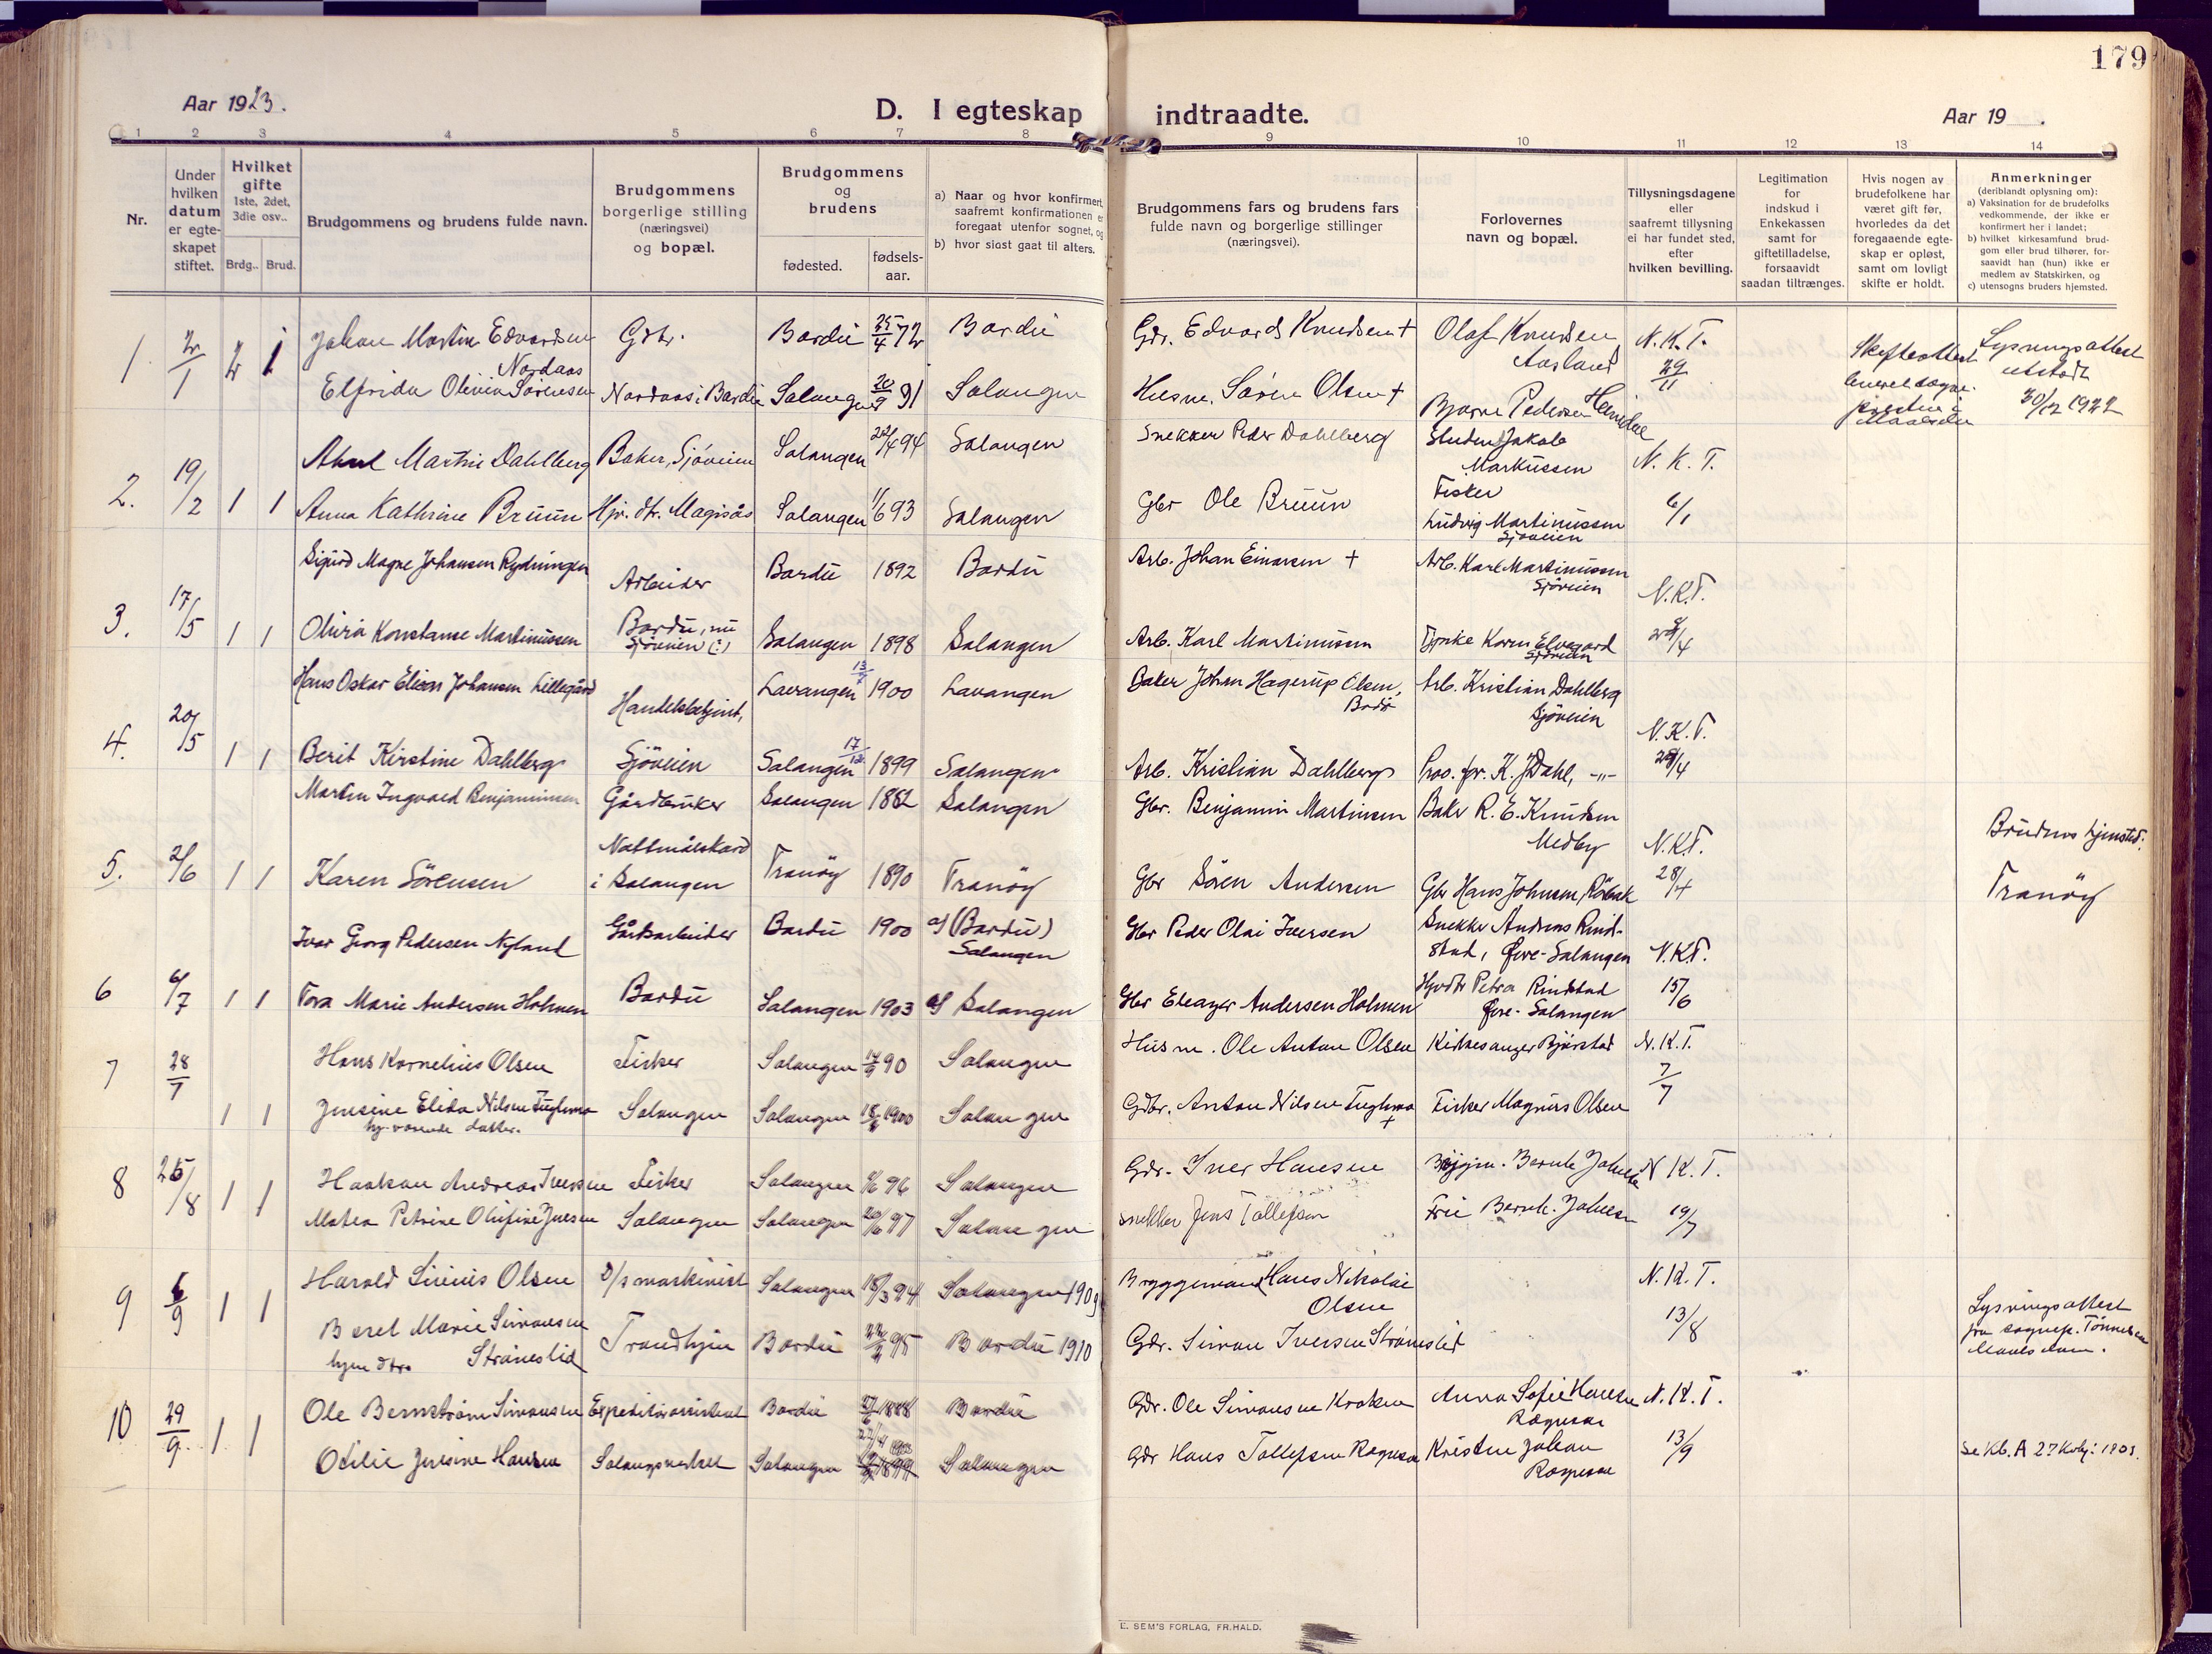 179
Aar 1923.
D. I egteskap indtraadte.
Aar 19
1 2 3 4 5 6 7 8 9 10 11 12 13 14
Nr.
Under hvilken datum er egte-skapet stiftet.
Hvilket gifte 1ste, 2det, 3die osv..
Brdg.. Brud.
Brudgommens og brudens fulde navn.
Brudgommens borgerlige stilling (næringsvei) og bopæl.
Brudgommens og brudens
fødested.
fødsels-aar.
a) Naar og hvor konfirmert, saafremt konfirmationen er foregaat utenfor sognet, og
b) hvor sidst gaat til alters.
Brudgommens fars og brudens fars fulde navn og borgerlige stillinger (næringsvei).
Forlovernes navn og bopæl.
Tillysningsdagene eller saafremt tillysning ei har fundet sted, efter hvilken bevilling.
Legitimation for indskud i Enkekassen samt for giftetilladelse, forsaavidt saadan tiltrænges.
Hvis nogen av brudefolkene har været gift før, hvorledes da det foregaaende egte-skap er opløst, samt om lovligt skifte er holdt.
Anmerkninger (deriblandt oplysning om):
a) Vaksination for de brudefolks vedkommende, der ikke er konfirmert her i landet;
b) hvilket kirkesamfund brud-gom eller brud tilhører, for-saavidt han (hun) ikke er medlem av Statskirken, og
c) utensogns bruders hjemsted.
1 2/1 2 1 Johan Martin Edvardsen Nordaas Gbr. Bardu 25/4 72 Bardu Gdr. Edvard Knudsen + Olaf Knudsen Aasland N. K. T. Skifteattest Lysningsattest utstedt
Elfrida Olivia Sørensen Nordaas i Bardu Salangen 20/9 91 Salangen Husm. Søren Olsen + Bjarne Pedersen 29/11 30/12 1922
2. 19/2 1 1 Martin Dahlberg Baker, Sjøveien Salangen 22/4 94 Salangen Snekker Peder Dahlberg Student Jakob Markussen N. K. T.
Anna Kathrine Bruun Hjv. dtr. Magisås Salangen 11/6 93 Salangen Gbr Ole Bruun Fisker Ludvig Martinussen Sjøveien 6/1
3. 17/5 1 1 Sigurd Magne Johansen Rydningen Arbeider Bardu 1892 Bardu Arb. Johan Einarsen + Arb. Karl Martinussen Sjøveien N.K.T.
Olivia Konstanse Martinussen Bardu, nu Sjøveien Salangen 1898 Salangen Arb. Karl Martinussen Karen Elvegard Sjøveien
4. 20/5 1 1 Hans Oskar Elieson Johansen Lillegård Handelsbetjent, Lavangen 1900 Lavangen Baker Johan Hagerup Olsen, Bodø Arb. Kristian Dahlberg Sjøveien N.K.T.
Berit Kirstine Dahlberg Sjöveien Salangen 17/12 1899 Salangen Arb. Kristian Dahlberg K. J. Dahl, -"- 28/4
5. 2/6 1 1 Martin Ingvald Benjaminsen Gårdbruker Salangen 1882 Salangen Gbr. Benjamin Martinsen Baker R. E. Knudsen Medby N.K.T. Brudens hjemsted:
Karen Sörensen Nattmålskard i Salangen Tranöy 1890 Tranöy Gbr Sören Andersen Gbr Hans Johnsen, Rötvik 28/4 Tranöy
6 6/7 1 1 Ivar Georg Pedersen Nyland Gårdsarbeider Bardu 1900 a) (Bardu) Salangen Gbr Peder Olai Iversen Snekker Andreas Rind-stad, Øvre-Salangen N.K.T.
Tora Marie Andersen Holmen Bardu Salangen 1903 a) Salangen Gbr Eleazer Andersen Holmen Hjvdtr Petra Rindstad Øvre-Salangen 15/6
7 28/7 1 1 Hans Kornelius Olsen Fisker Salangen 14/9 90 Salangen Husm. Ole Anton Olsen Kirkesanger Bjørstad N.K.T.
Jensine Elida Nilsen Fuglemo Salangen Salangen 1900 Salangen Gdbr. Anton Nilsen Fuglemo + Fisker Magnus Olsen 7/7
hj. værende datter.
8 25/8 1 1 Haakon Andreas Iversen Fisker Salangen 96 Salangen Gdr. Iver Hansen Bernh. Johnsen N K. T.
Matea Petrine Olufine Jensen Salangen Salangen 20/6 97 Salangen snekker Jens Tollefsen Fru Bernh. Johnsen 19/7
9 6/9 1 1 Harald Sirius Olsen D/s maskinist Salangen 18/3 94 Salangen 1909 Bryggemand Hans Nikolai Olsen N. K. T.
Berel Marie Simonsen Strømslid Trondhjem Bardu 95 Bardu 1910 Gdr. Simon Iversen Strømslid 13/8 Lysningsattest fra sognepr. Tønnesen
10 29/9. 1 1 Ole Bernstrøm Simonsen Expeditørassistent Bardu 1888 Bardu Gdr. Ole Simonsen Kroken Anna Sofie Hansen Ragnesen N. K. T.
Otilie Jensine Hansen Salangsverket Salangen 1899 Salangen Gdr Hans Tollefsen Kristen Johan 13/9 Se Kb. A
E. SEM'S FORLAG, FR.HALD.